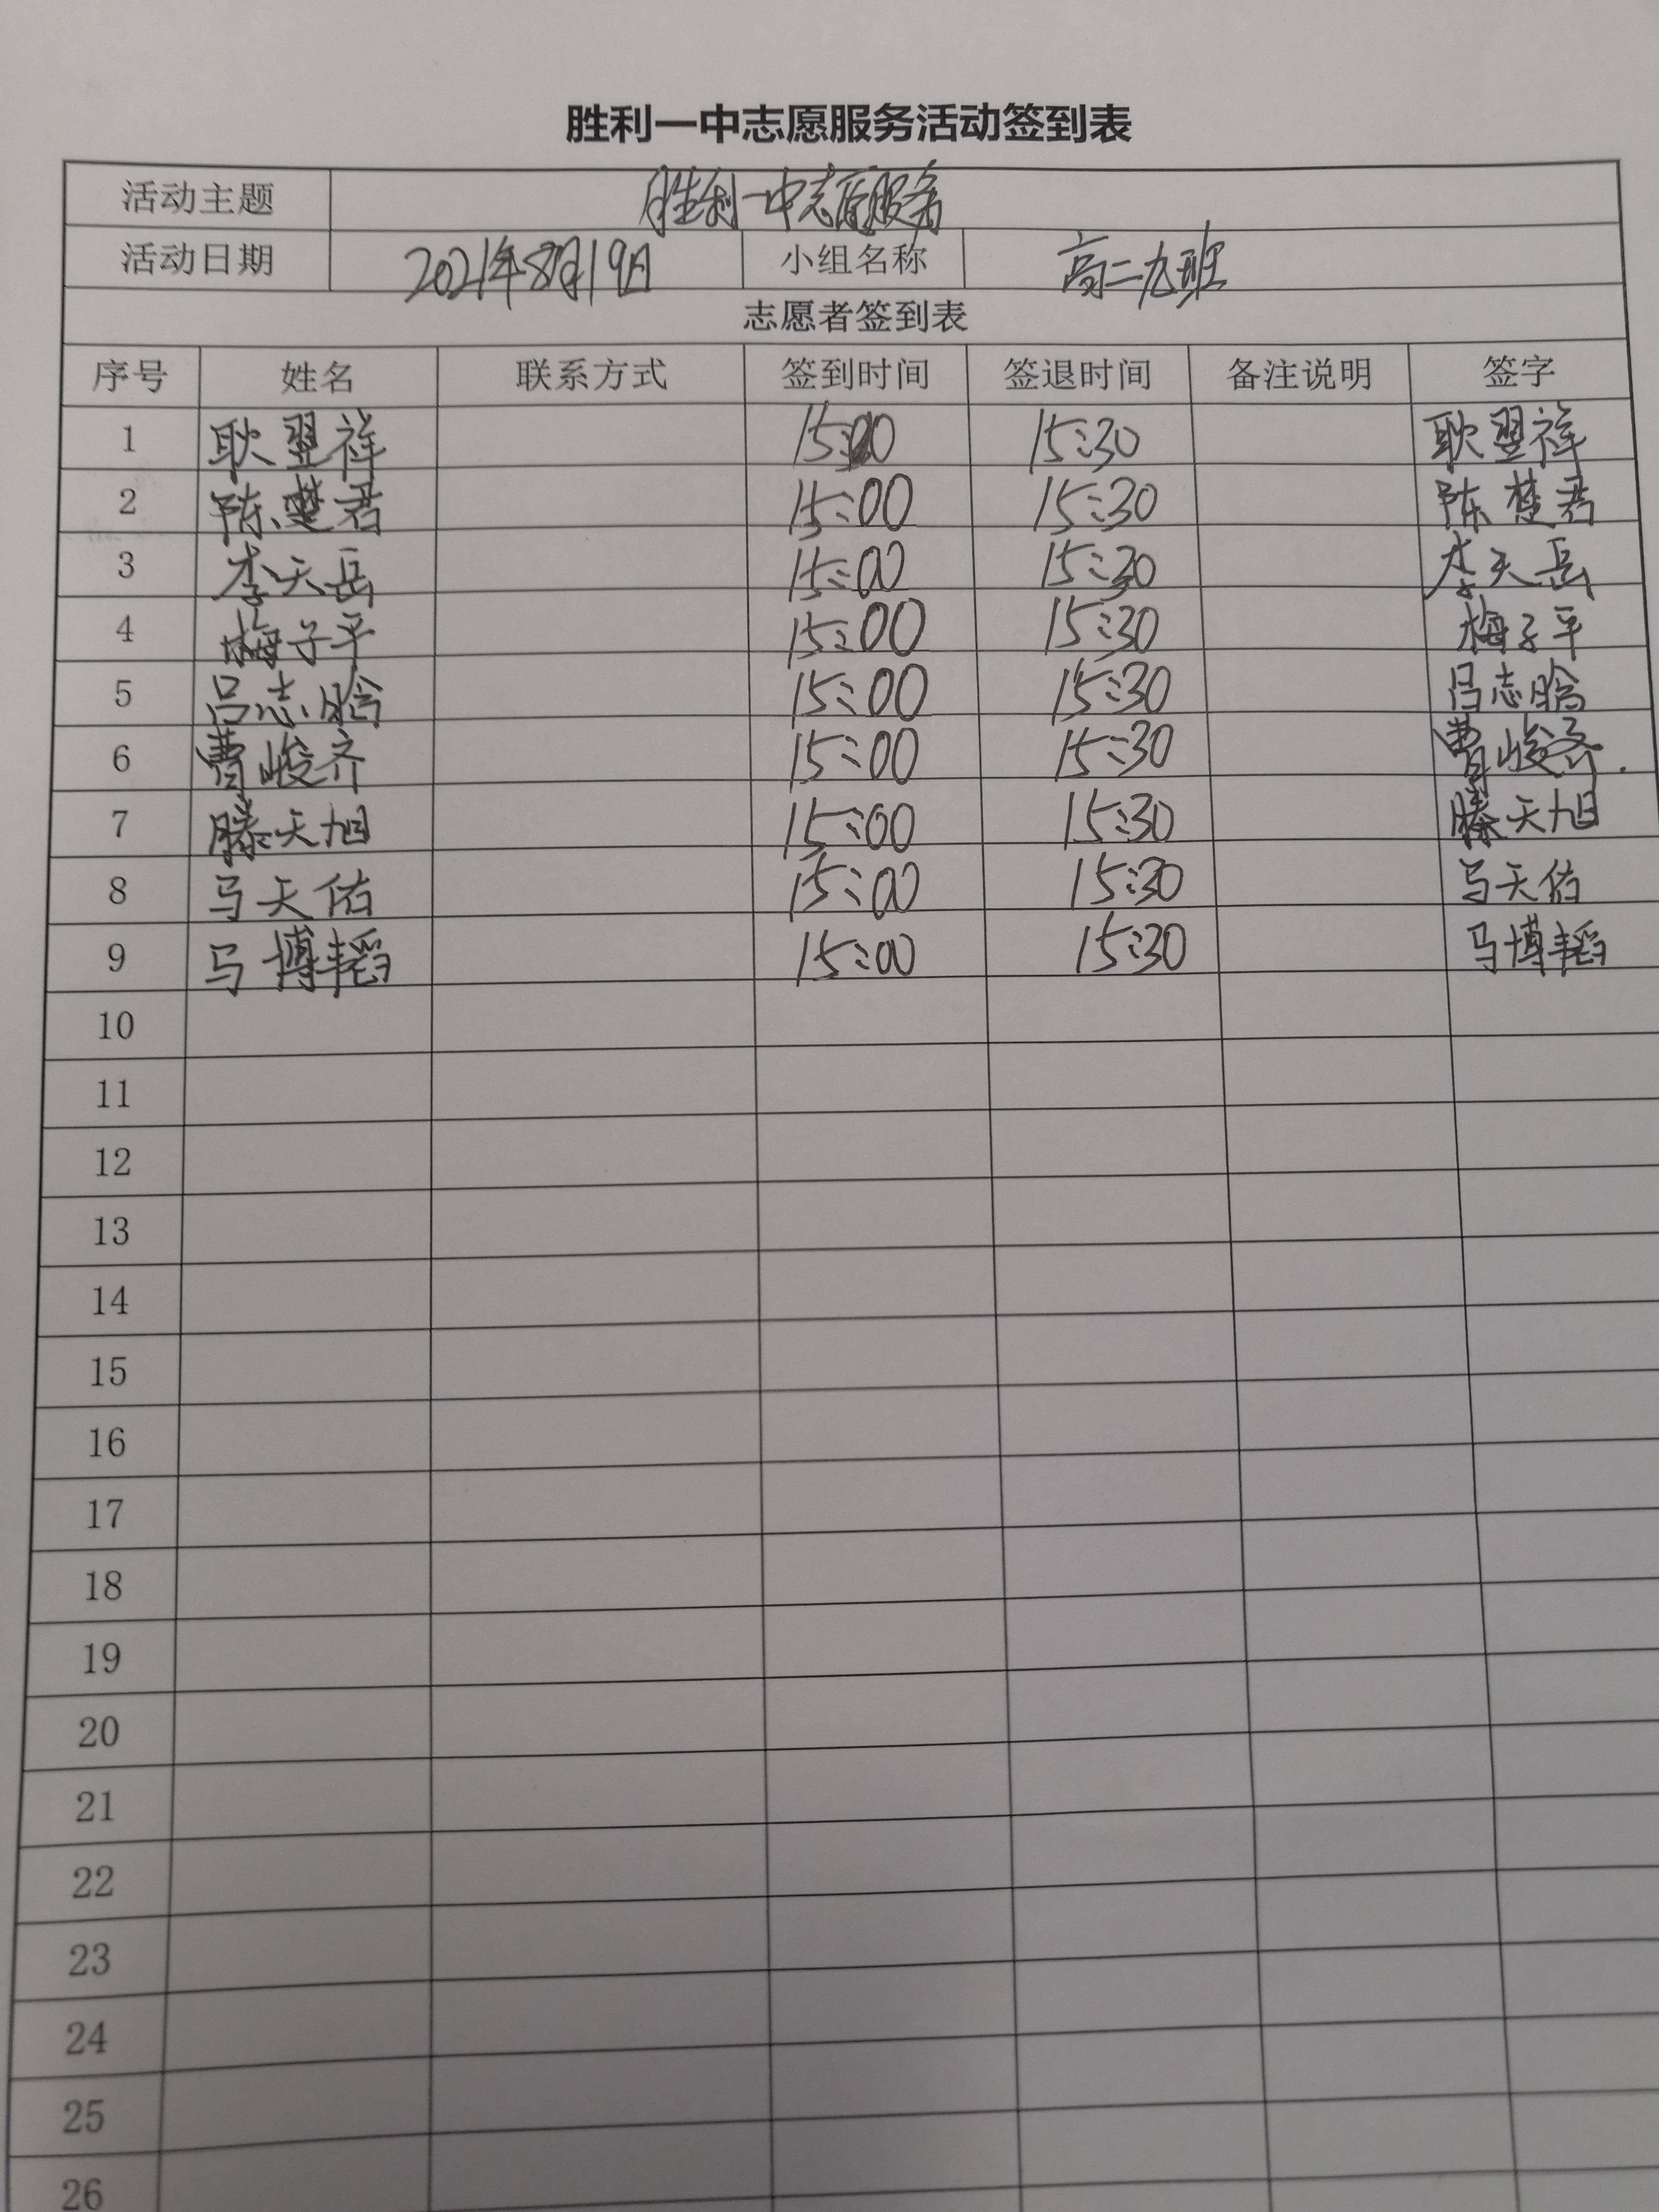 胜利一中志愿服务活动签到表
活动主题 胜利一中志愿服务
活动日期 2021年8月19日 小组名称 高二九班
志愿者签到表
序号 姓名 联系方式 签到时间 签退时间 备注说明 签字
1 耿翌祥 15:00 15:30 耿翌祥
2 陈楚君 15:00 15:30 陈楚君
3 李天岳 15:00 15:30 李天岳
4 梅子平 15:00 15:30 梅子平
5 吕志晗 15:00 15:30 吕志晗
6 曹峻齐 15:00 15:30 曹峻齐
7 滕天旭 15:00 15:30 滕天旭
8 马天佑 15:00 15:30 马天佑
9 马博韬 15:00 15:30 马博韬
10
11
12
13
14
15
16
17
18
19
20
21
22
23
24
25
26